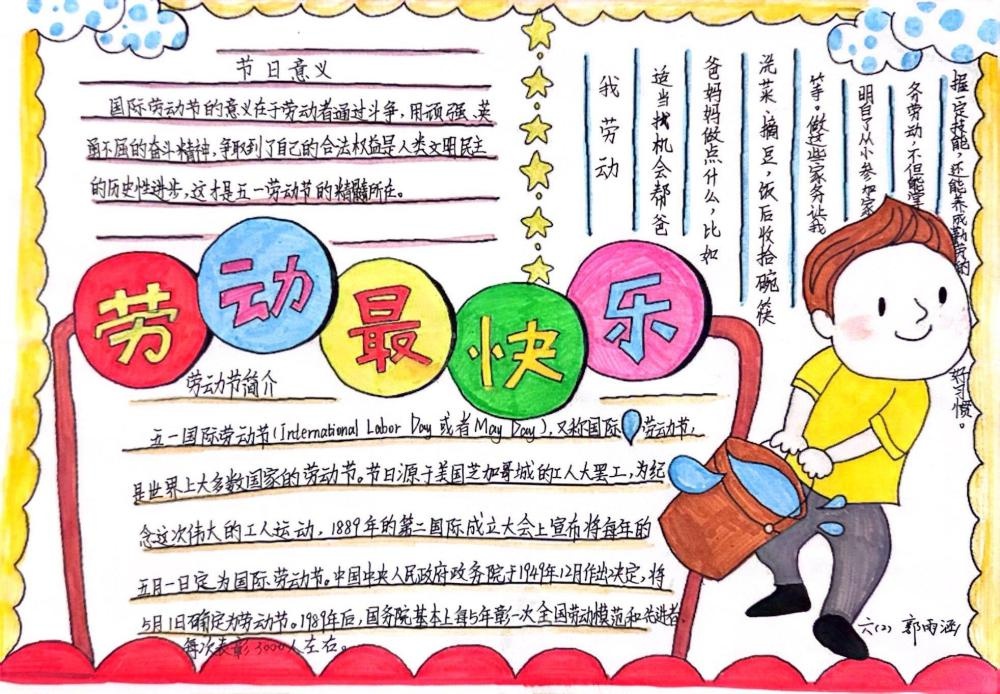 节日意义
国际劳动节的意义在于劳动者通过斗争,用顽强、英
勇不屈的奋斗精神,争取到了自己的合法权益是人类文明民主
的历史性进步,这才是五一劳动节的精髓所在。
我劳动
适当找机会帮爸
爸妈妈做点什么,比如
洗菜、摘豆,饭后收拾碗筷
等。做这些家务让我
明白了从小参加家
务劳动,不但能掌
握一定技能,还能养成勤劳的
好习惯。
劳动最快乐
劳动节简介
五一国际劳动节(International Labor Day 或者May Day),又称国际劳动节,
是世界上大多数国家的劳动节。节日源于美国芝加哥城的工人大罢工,为纪
念这次伟大的工人运动,1889年的第二国际成立大会上宣布将每年的
五月一日定为国际劳动节。中国中央人民政府政务院于1949年12月作出决定,将
5月1日确定为劳动节。1989年后,国务院基本上每5年彰一次全国劳动模范和先进者,
每次表彰3000人左右。
六(2) 郭雨涵